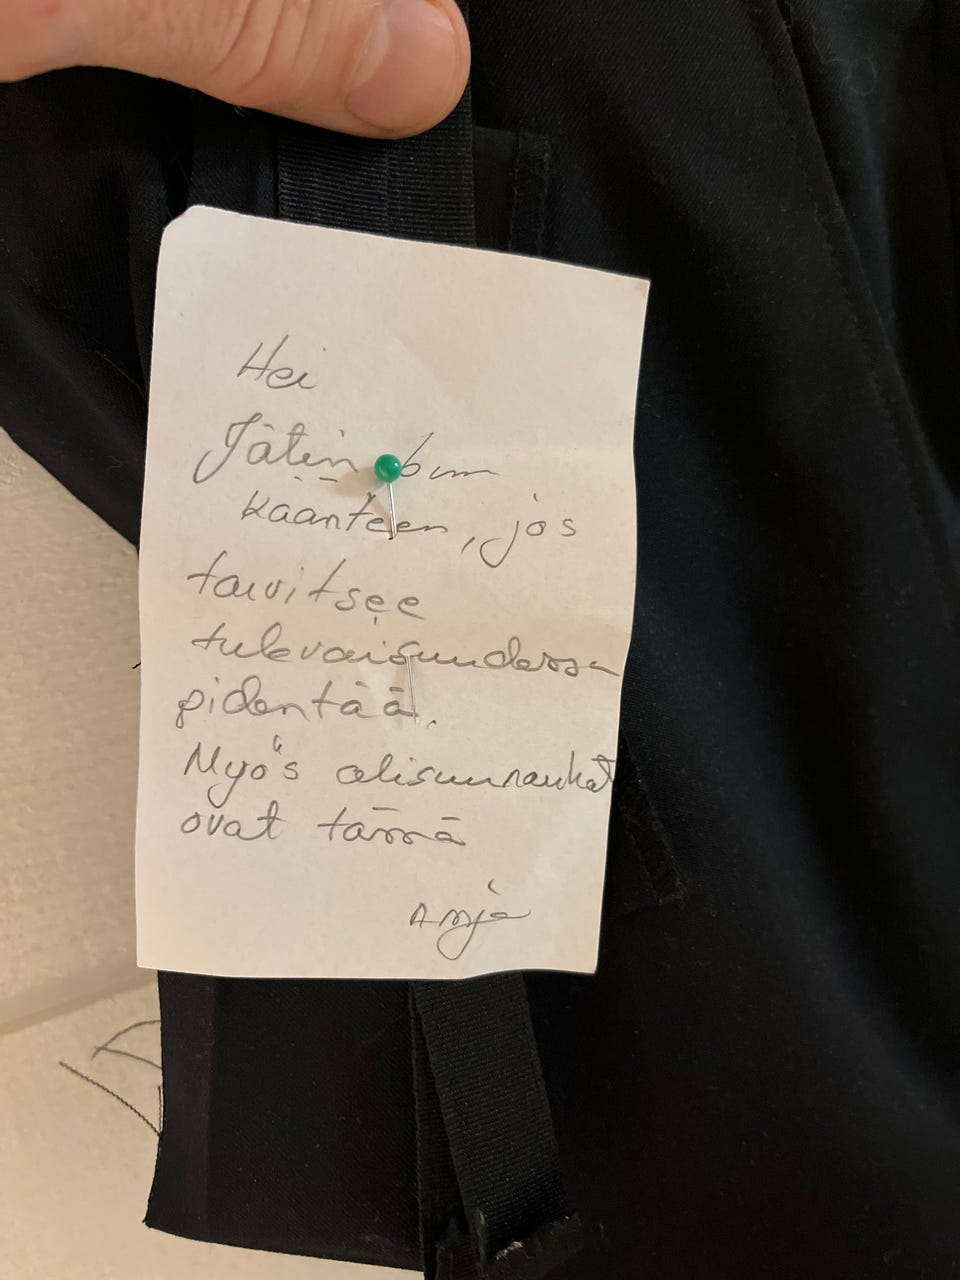 Hei
Jätin 6 cm
käänteen, jos
tarvitsee
tulevaisuudessa
pidentää.
Myös alisuunnauhat
ovat tässä
Anja